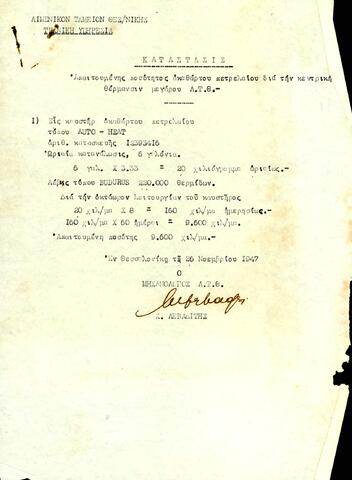 ΛΙΜΕΝΙΚΟΝ ΤΑΜΕΙΟΝ ΘΕΣ/ΝΙΚΗΣ
ΤΕΧΝΙΚΗ ΥΠΗΡΕΣΙΑ
Κ Α Τ Α Σ Τ Α Σ Ι Σ
'Απαιτουμένης ποσότητος ἀκαθάρτου πετρελαίου διά τήν κεντρική
θέρμανσιν μεγάρου Λ.Τ.Θ.-
Ι) Είς καυστήρ ἀκαθάρτου πετρελαίου
τύπου AUTO - HEAT
ἀριθ. κατασκευῆς Ι2393416
'Ωριαία κατανάλωσις, 6 γαλόνια.
6 γαλ. Χ 3.33 = 20 χιλιόγραμμα ὡριαίως.-
Λέβης τύπου BUDURUS 220.000 θερμίδων.
Διά τήν ὀκτάωρον λειτουργίαν τοῦ καυστῆρος
20 χιλ/μα Χ 8 = Ι60 χιλ/μα ἡμερησίως.
Ι60 χιλ/μα Χ 60 ἡμέραι = 9.600 χιλ/μα.-
'Απαιτουμένη ποσότης 9.600 χιλ/μα.-
'Εν Θεσσαλονίκῃ τῇ 26 Νοεμβρίου 1947
Ο
ΜΗΧΑΝΟΛΟΓΟΣ Λ.Τ.Θ.